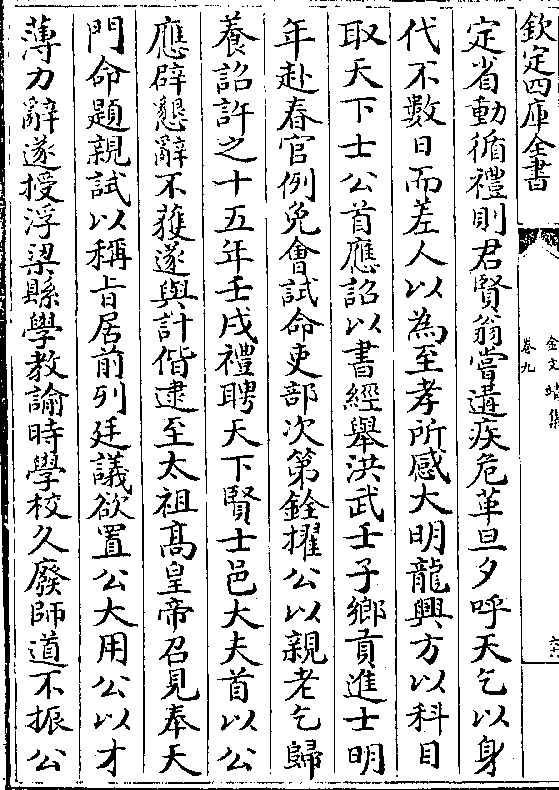 欽定四庫全書
金文靖集
卷九
定省動循禮則君賢翁嘗遘疾危革旦夕呼天乞以身
代不數日而差人以為至孝所感大明龍興方以科目
取天下士公首應詔以書經舉洪武壬子鄉貢進士明
年赴春官例免會試命吏部次第銓擢公以親老乞歸
養詔許之十五年壬戌禮聘天下賢士邑大夫首以公
應辟懇辭不獲遂與計偕逮至太祖高皇帝召見奉天
門命題親試以稱旨居前列廷議欲置公大用公以才
薄力辭遂授浮梁縣學教諭時學校久廢師道不振公